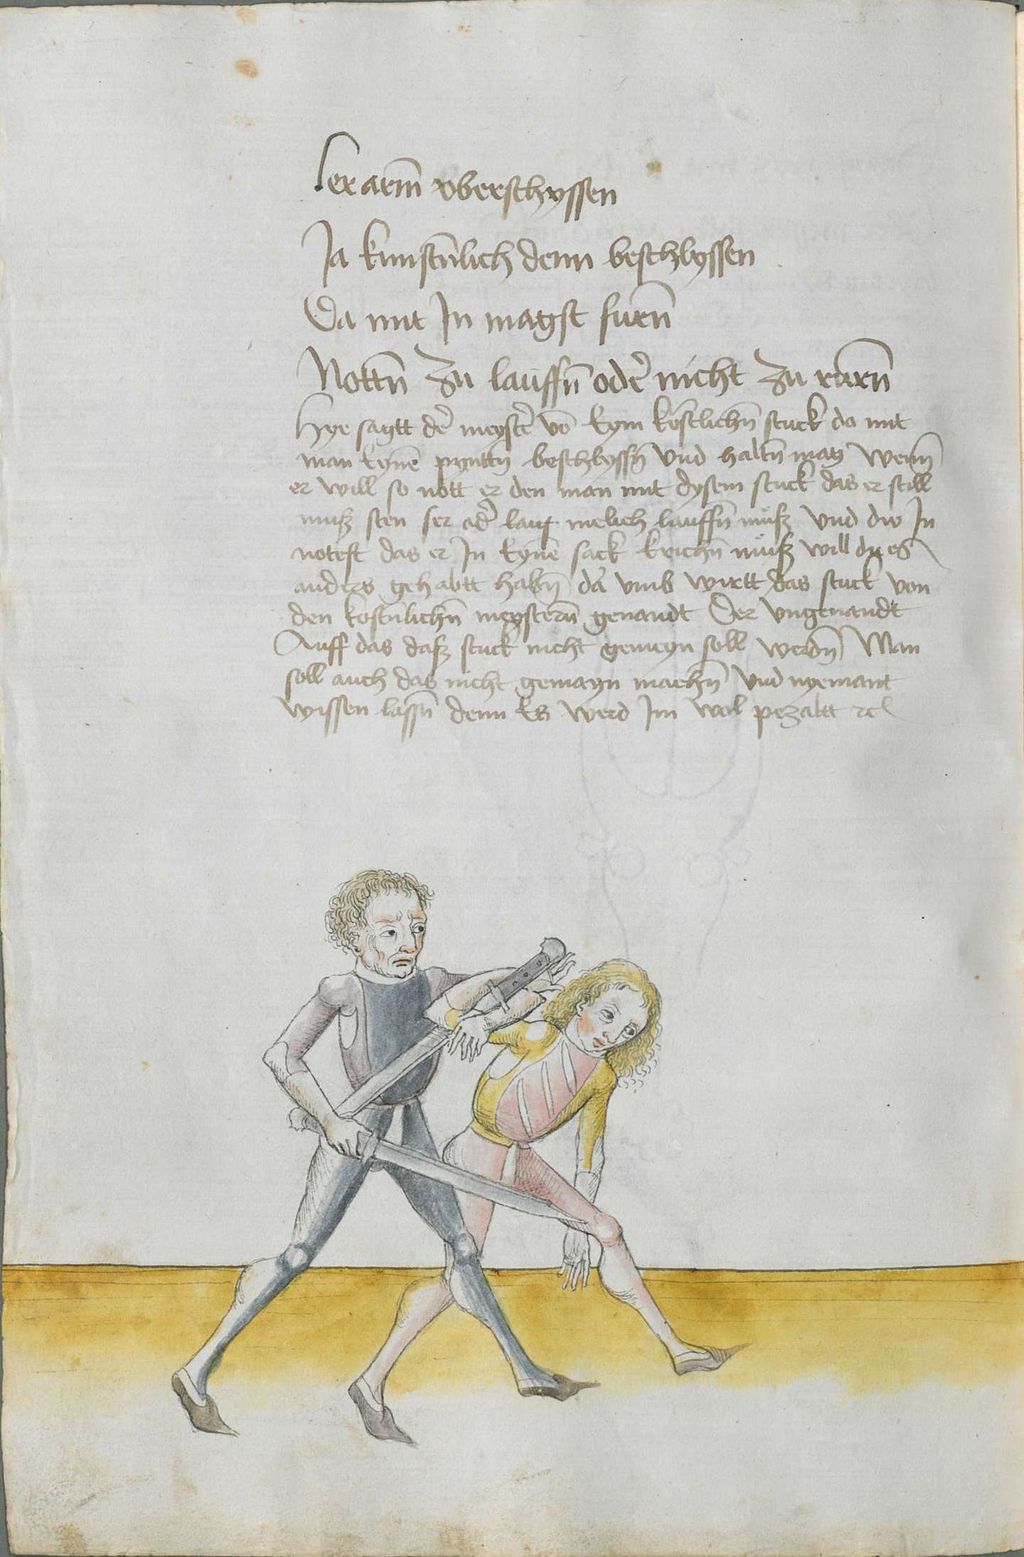 Ler arm vberschyssen
Ja kunstlich denn beschlyssen
Da mit Jn magst furn̄
Nottn̄ zu lauffn̄ oder nicht zu rurn̄
Hye sagtt der meyster vō eym kostlichn̄ stuck do mit
man eynē pyntn̄ beschlyssn̄ vnd haltn̄ mag Wenn
er will so nott er den man mit dysem stuck das er still
muß sten ser oder lauffn̄ muß Vnd dw Jn
notest das er Jn eynē sack krichn̄ muß will du es
anders gehabtt habn̄ dar vmb wirtt das stuck von
den kostnlichn̄ meystern̄ genandt Der vngenandt
Auff das daß stuck nicht gemeyn soll werdn̄ Man
soll auch das nicht gemayn machn̄ Vnd nyemant
wyssen lassn̄ denn Es werd Jm wol pezaltt ꝛc